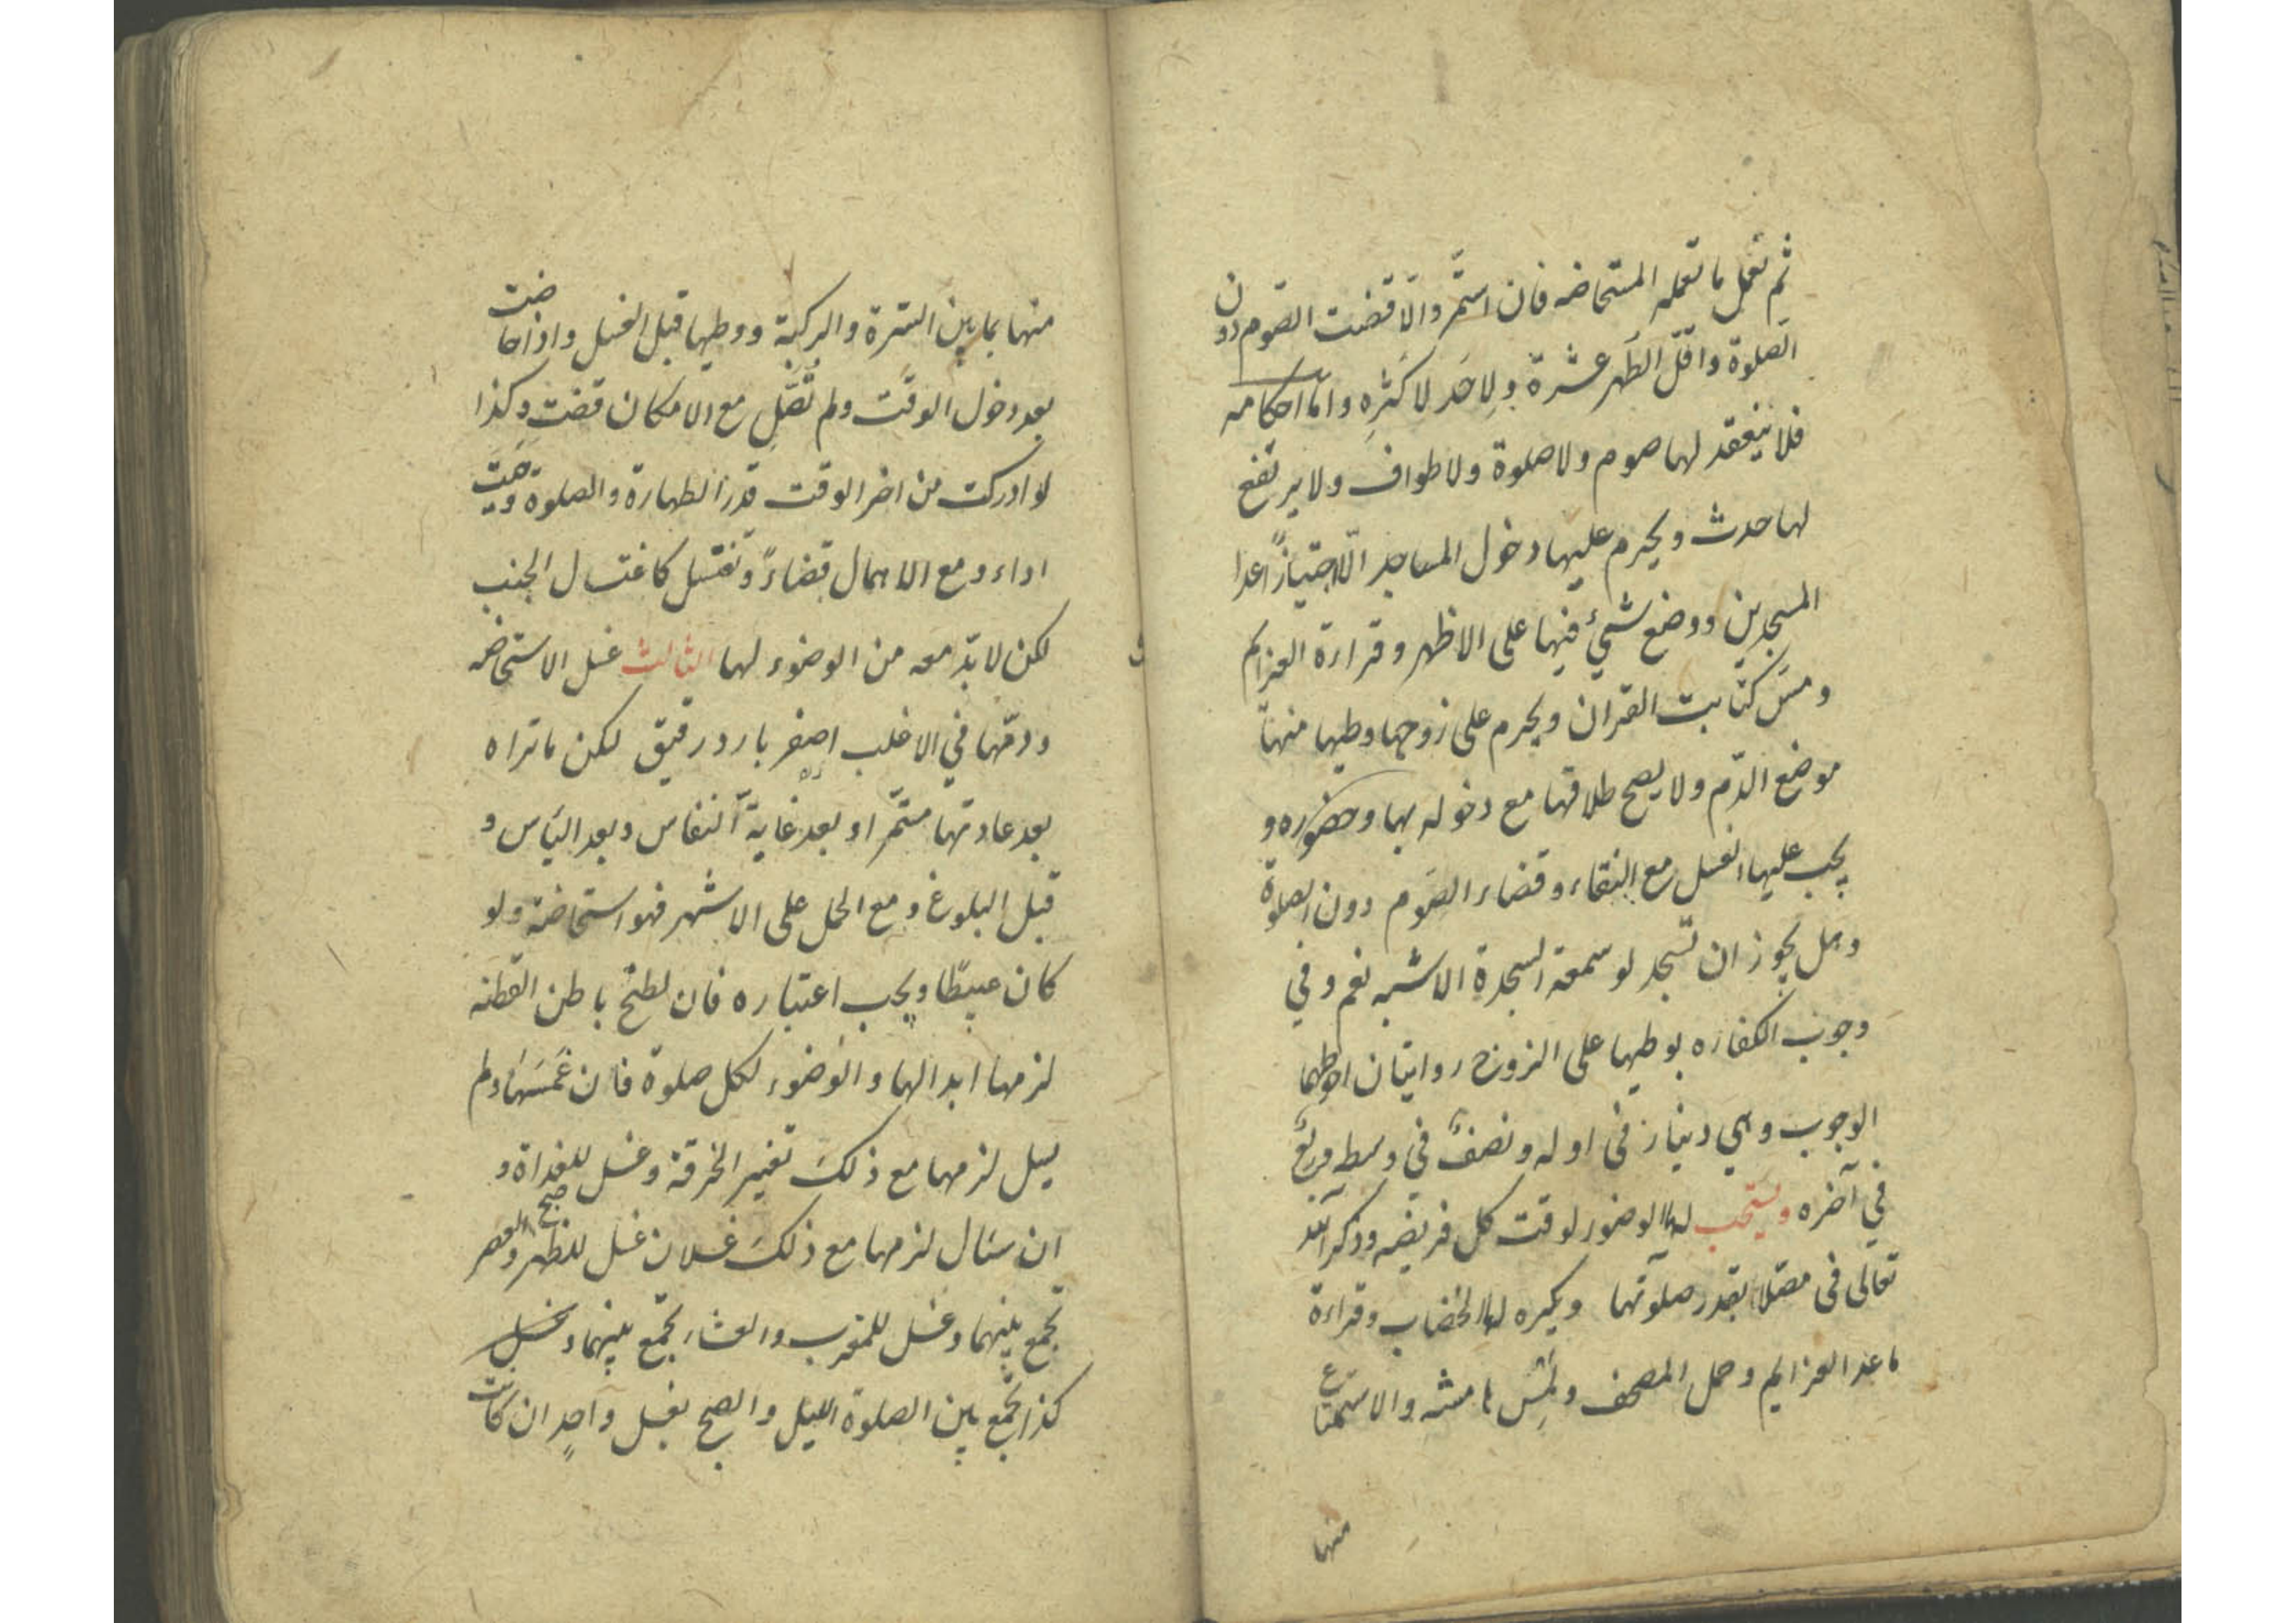 ثم تعمل ما تعمله المستحاضه فان استمّر والّا قضت الصّوم دون
الصلوة واقلّ الطّهر عشرة ولا حَد لاكثرِه وامّا احكامه
فلا ينعقد لها صوم ولا صلوة ولا طواف ولا يرتفع
لها حدث ويحرم عليها دخول المساجد الّا اجتيازًا عدا
المسجدين ووضع شيءٍ فيها على الاظهر وقراءة العزايم
ومسّ كتابت القران ويحرم على زوجها وطيها منها
موضع الدّم ولا يصح طلاقها مع دخوله بها وحضوره و
يجب عليها الغسل مع النقاء وقضاء الصّوم دون الصلوة
وهل يجوز ان تسجد لو سمعة السجدة الاشبه نعم وفي
وجوب الكفاره بوطيها على الزوج روايتان احوطهما
الوجوب وهي دينار في اوله ونصفٌ في وسطه وربعٌ
في آخره ويستحب لها الوضوء لوقت كل فريضه وذكر الله
تعالى في مصلّا بقدر صلوتها ويكره لها الخضاب وقراءة
ما عدا العزايم وحمل المصحف ولمس هامشه والاستمتاع
منها
منها بما بين السّرة والركبة ووطيها قبل الغسل واذا حاضت
بعد دخول الوقت ولم تُصَلِّ مع الامكان قضت وكذا
لو ادركت من اخر الوقت قدر الطهارة والصلوة وجبت
اداء ومع الاهمال قضاءً وتغتسل كاغتسال الجنب
لكن لا بدّ معه من الوضوء لها الثالث غسل الاستحاضه
ودمّها في الاغلب اصفر بارد رقيق لكن ما تراه
بعد عادتها مستمّرا او بعد غاية النفاس وبعد اليأس و
قبل البلوغ ومع الحمل على الاشهر فهو استحاضة ولو
كان عبيطًا ويجب اعتباره فان لطخ باطن القطنه
لزمها ابدالها والوضوء لكل صلوة فان غَمَسَهَا ولم
يسل لزمها مع ذلك تغيير الخرقة وغسل للغداة و
ان سال لزمها مع ذلك غسلان غسل للظهر والعصر
تجمع بينهما وغسل للمغرب والعشاء تجمع بينهما وبغسل صبح
كذا تجمع بين الصلوة الليل والصبح بغسل واحدٍ ان كانت